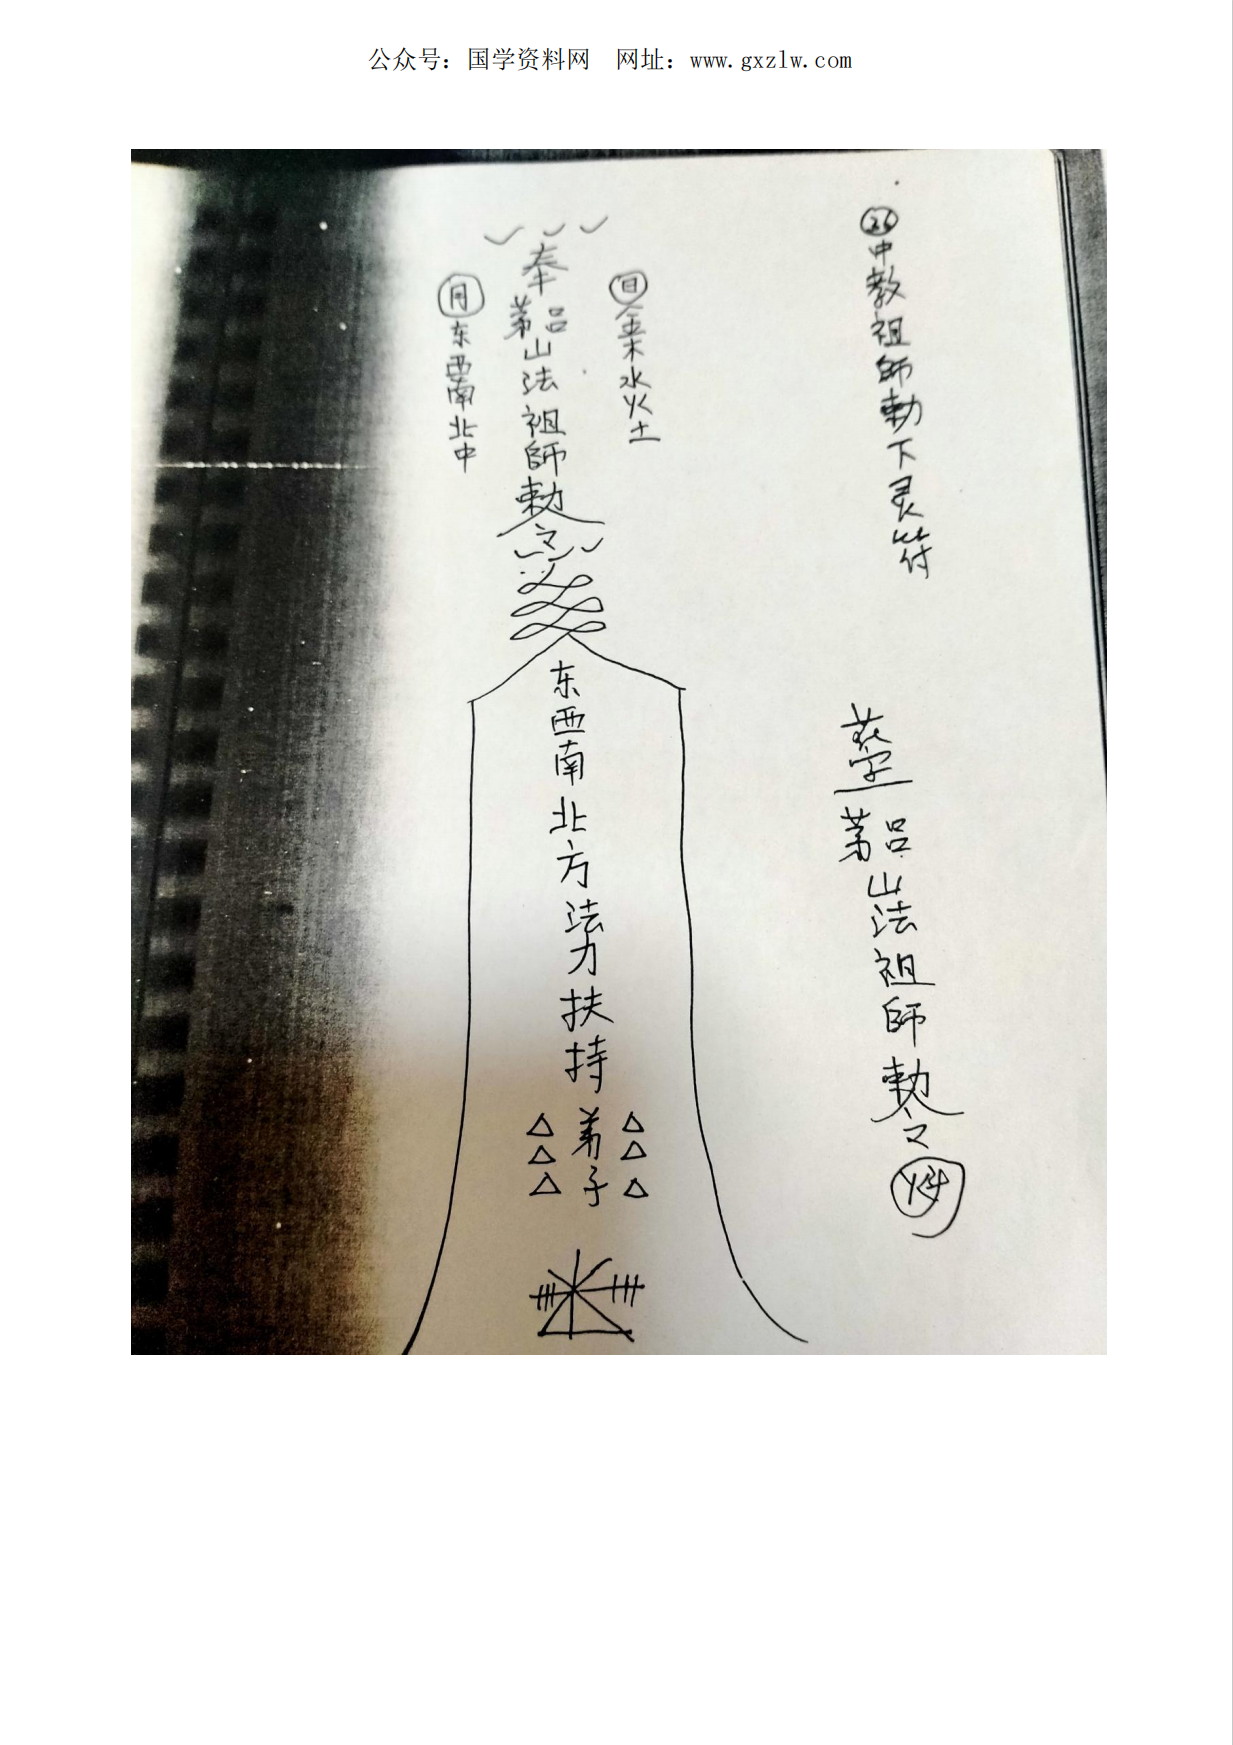 公众号：国学资料网　网址：www.gxzlw.com
26 中教祖師勅下灵符
茅吕山法祖師勅令
日 金木水火土
奉茅吕山法祖師勅令
月 东西南北中
东西南北方法力扶持弟子